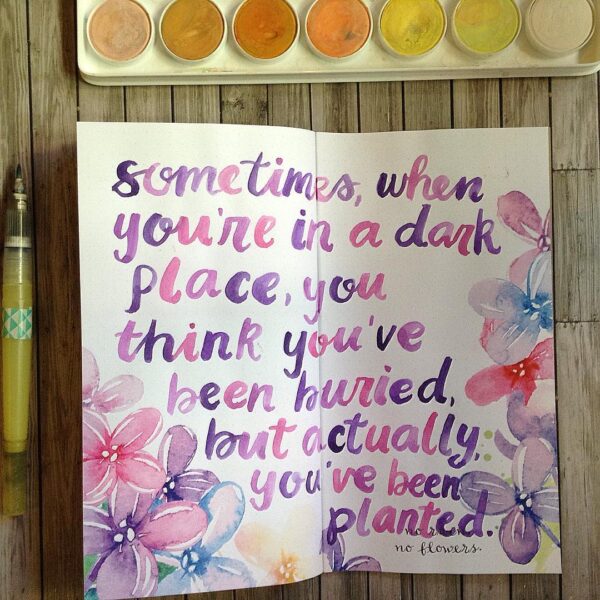 sometimes, when
you're in a dark
place, you
think you've
been buried,
but actually,
you've been
planted.
no
no flowers.